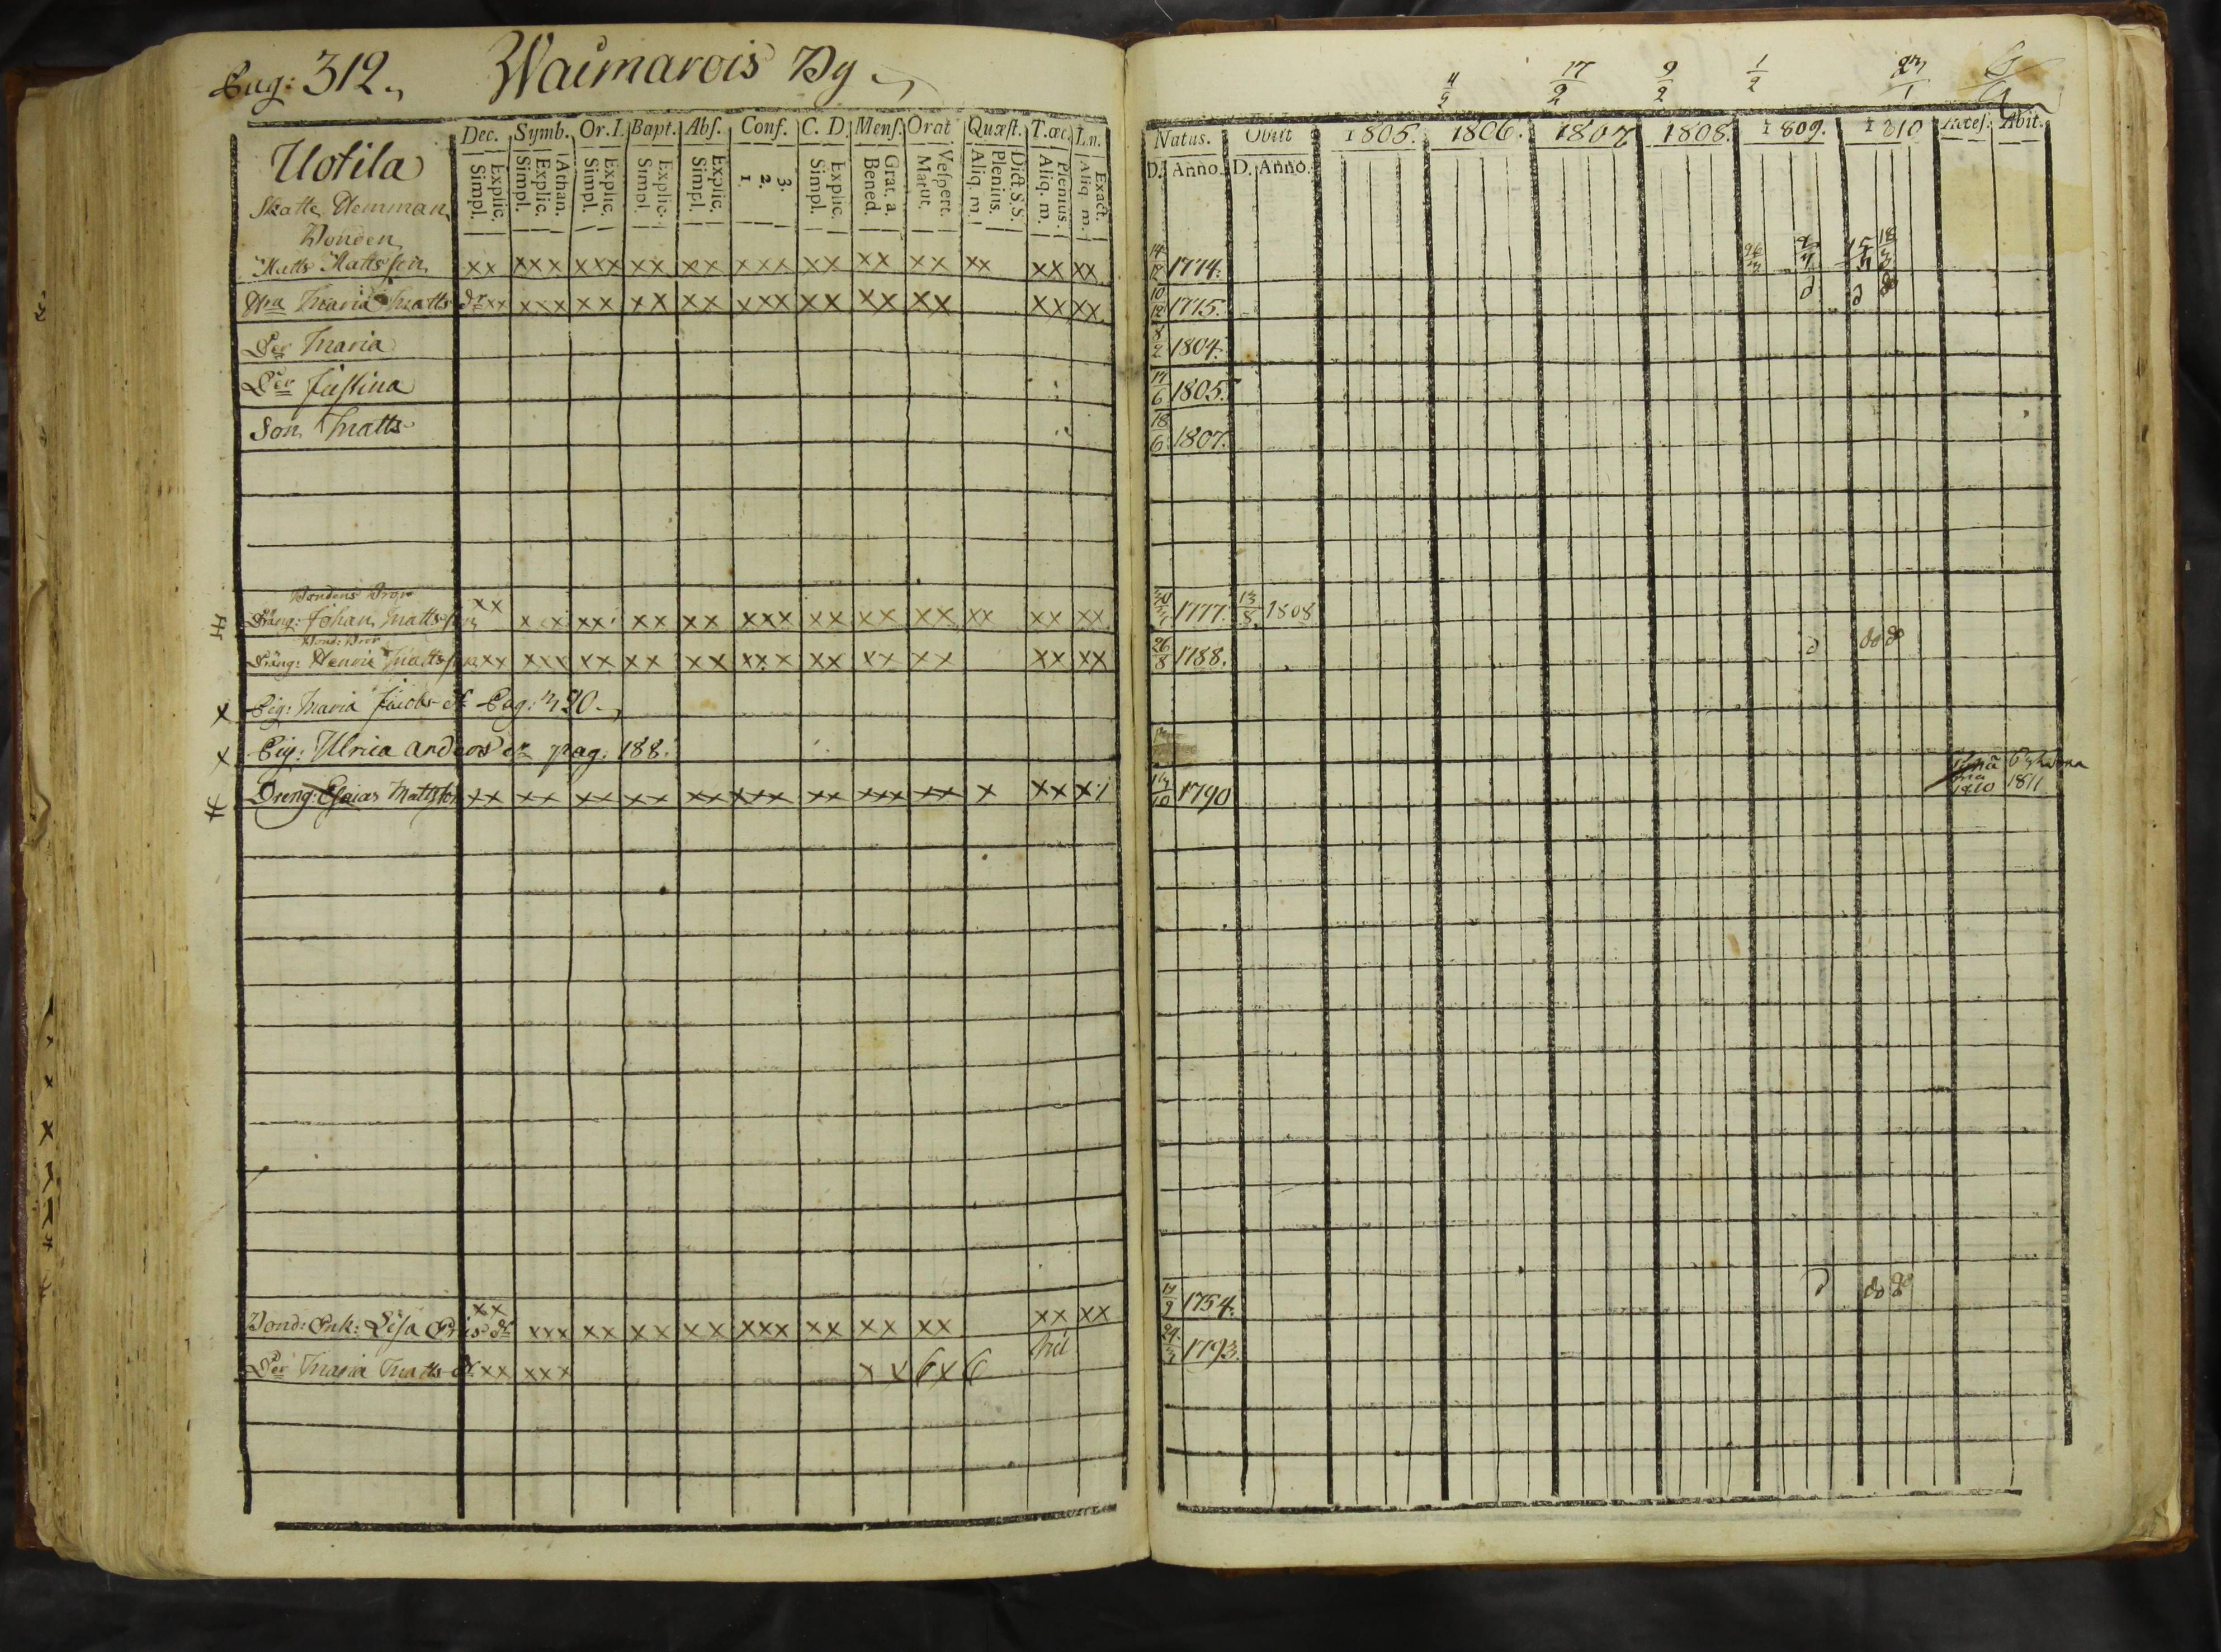 Pag: 312. Waimarois By
Uotila
Skatte Hemman
Dec. Symb. Or. I. Bapt. Abſ. Conf. C. D. Menſ. Orat Quæſt. T. œc. L. n.
Explic. Simpl. Athan. Explic. Simpl. Explic. Simpl. Explic. Simpl. Explic. Simpl. 3. 2. 1. Explic. Simpl. Grat. a. Bened. Veſpert. Matut. Dict. S. S. Plenius. Aliq. m. Plenius. Aliq. m. Exact. Aliq. m.
17/2 9/2 1/2
Natus. Obiit 1805. 1806. 1807 1808. 1809. 1810 Acceſ. Abit.
D. Anno. D. Anno.
Bonden
Matts Mattsson xx xxx xxx xx xx xxx xx xx xx xx xx xx 14/12 1774.
Hru Maria Matts dr xx xxx xx xx xx xxx xx xx xx xx xx 10/12 1775.
Der Maria 8/2 1804.
Der Justina 1805.
Son Matts 18/6 1807.
Bondens Bror
Dräng: Johan Mattsson xx xxx xx xx xx xxx xx xx xx xx xx xx 1777. 13/8 1808
Bond: Bror
Dräng: Henric Mattsson xx xxx xx xx xx xxx xx xx xx xx xx 26/8 1788. do do
x Pig: Maria Jacobs dr Pag: 320.
x Pig: Ulrica Anders dr pag. 188.
Dreng: Esaias Mattsson xx xx xx xx xx xxx xx xxx xx x xx x 1790 1810 1811
Bond: Enk: Lisa Eriks dr xx xxx xx xx xx xxx xx xx xx xx xx 1754. do do
Der Maria Matts dr xx xxx 1793.